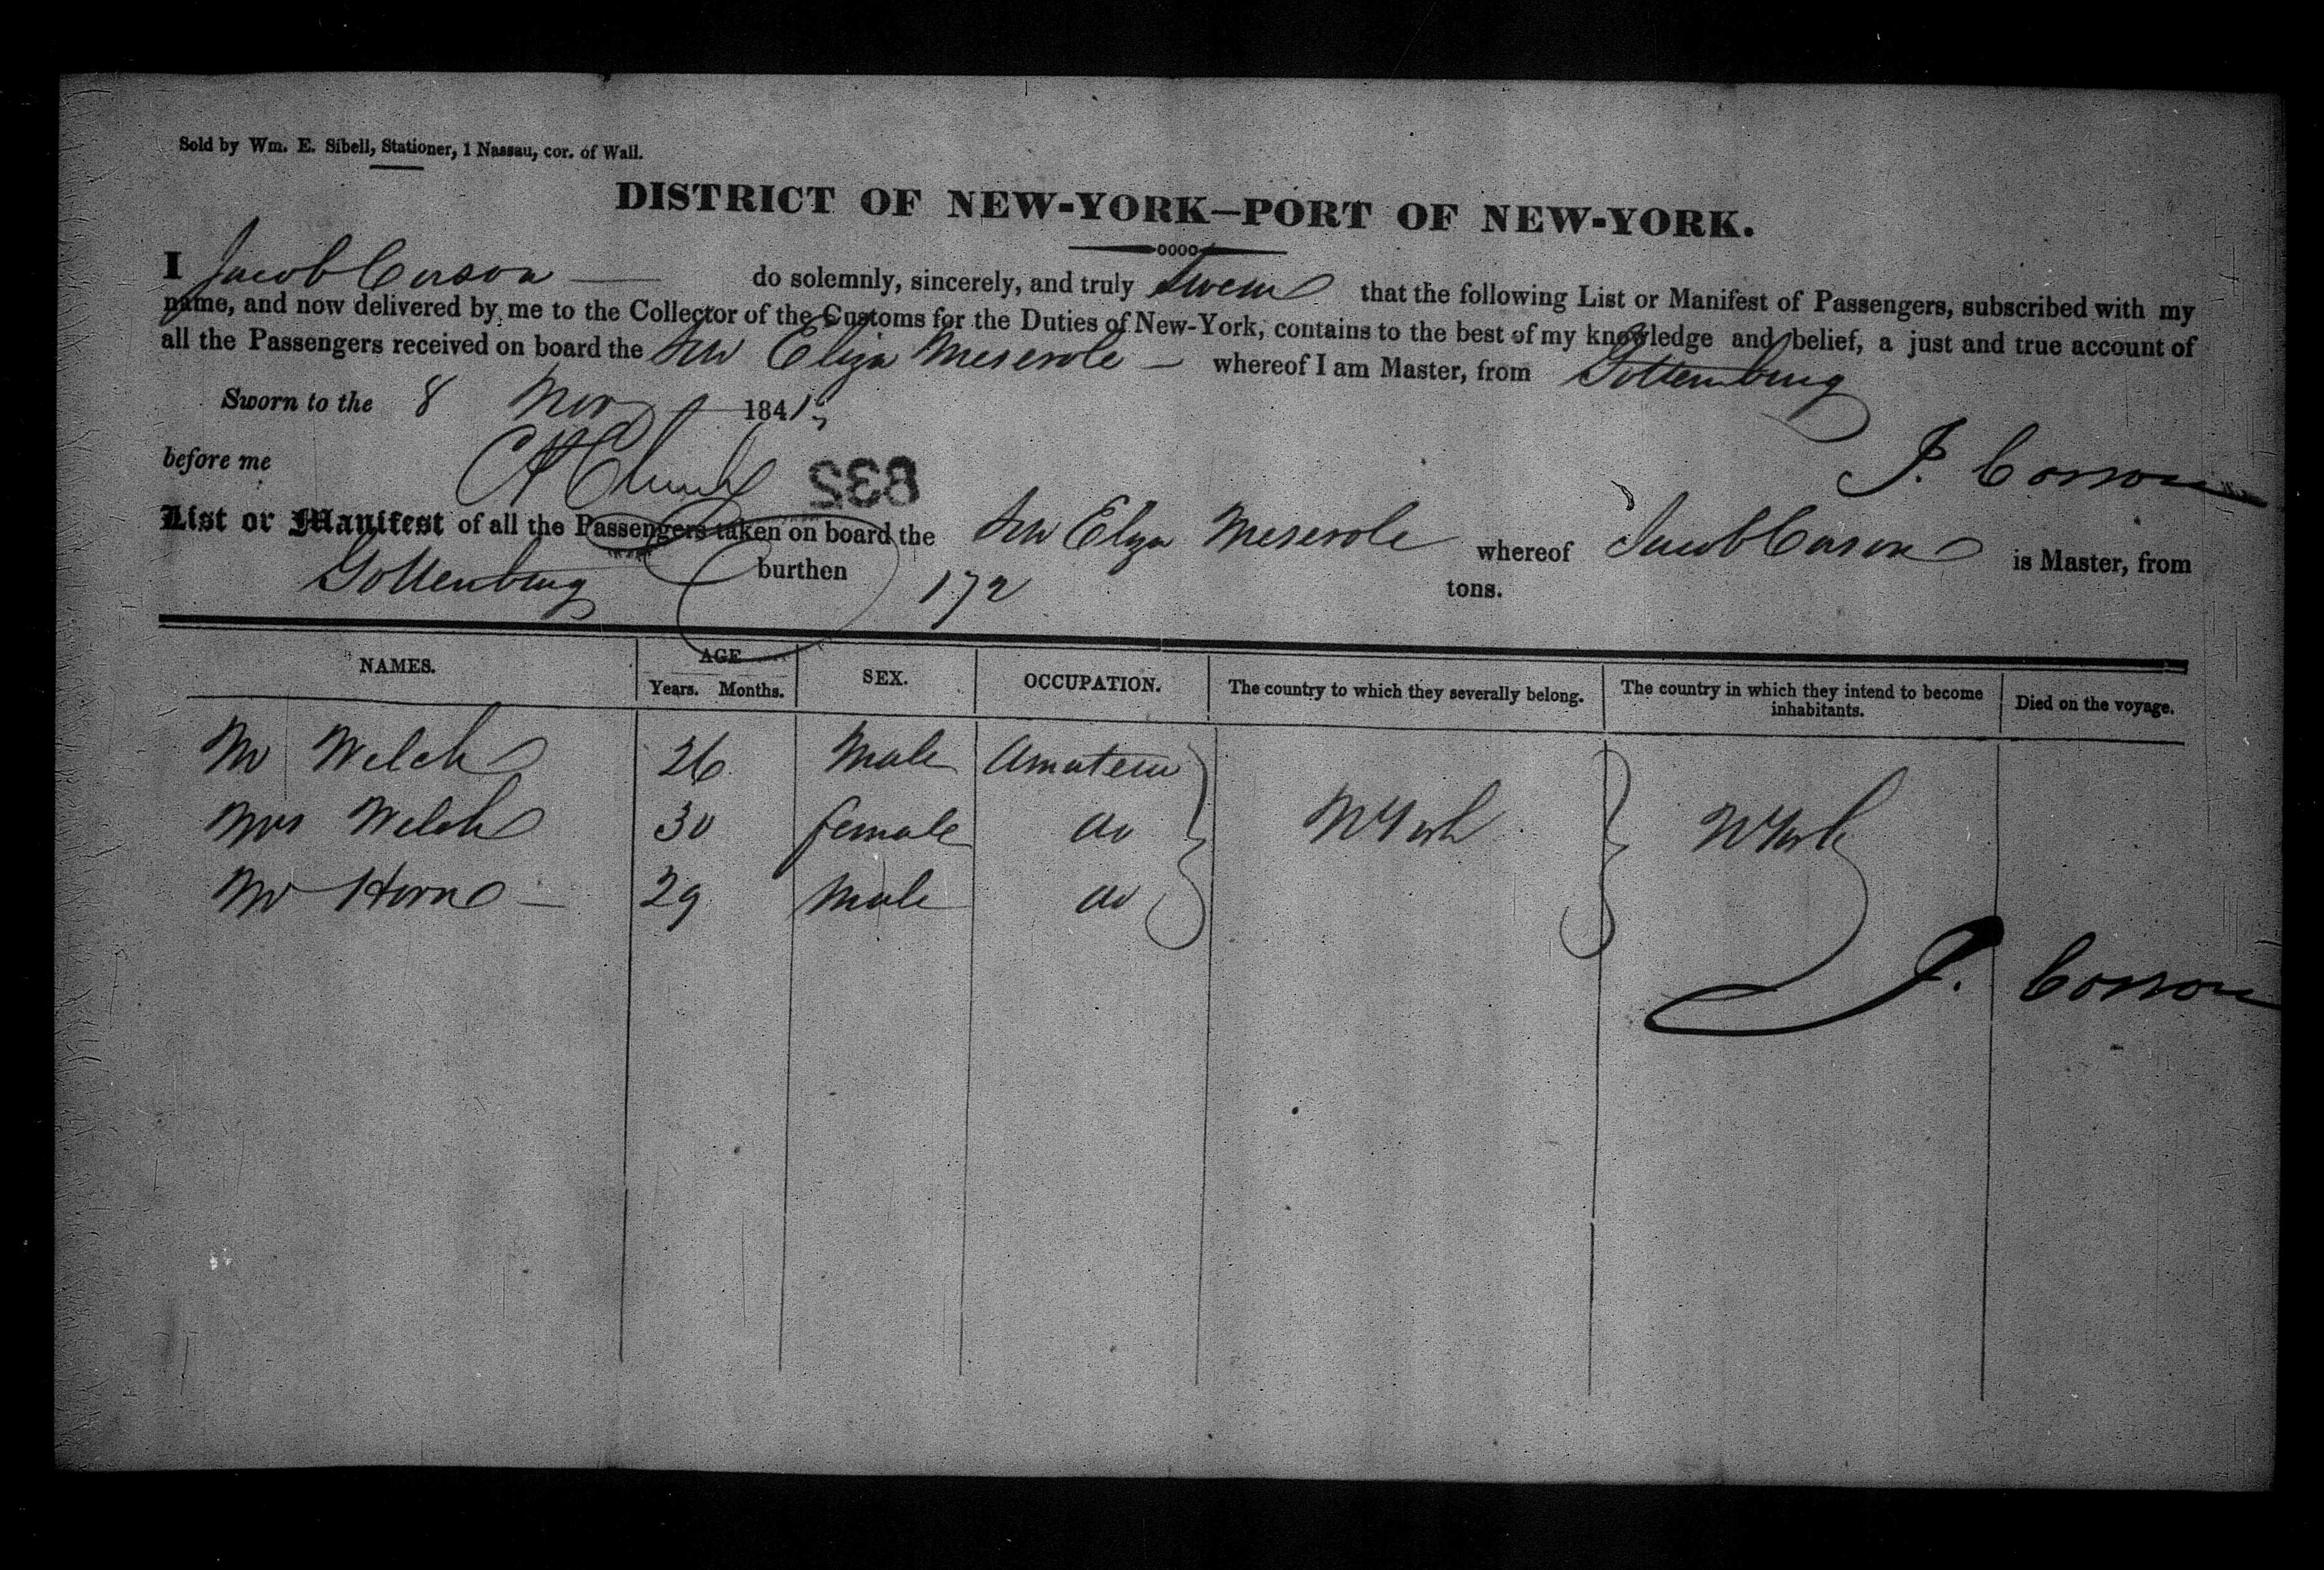 Sold by Wm. E. Sibell, Stationer, 1 Nassau, cor. of Wall.
DISTRICT OF NEW-YORK—PORT OF NEW-YORK.
I Jacob Corson — do solemnly, sincerely, and truly swear that the following List or Manifest of Passengers, subscribed with my
name, and now delivered by me to the Collector of the Customs for the Duties of New-York, contains to the best of my knowledge and belief, a just and true account of
all the Passengers received on board the Schr Eliza Meserole — whereof I am Master, from Gottenburg
Sworn to the 8 Nov 184
before me
J. Corson
832
List or Manifest of all the Passengers taken on board the Schr Eliza Meserole whereof Jacob Corson is Master, from
Gottenburg burthen 172 tons.
NAMES. AGE Years. Months. SEX. OCCUPATION. The country to which they severally belong. The country in which they intend to become inhabitants. Died on the voyage.
Mr Welch 26 Male Amateur
Mrs Welch 30 female do N York N York
Mr Horn — 29 Male do
J. Corson